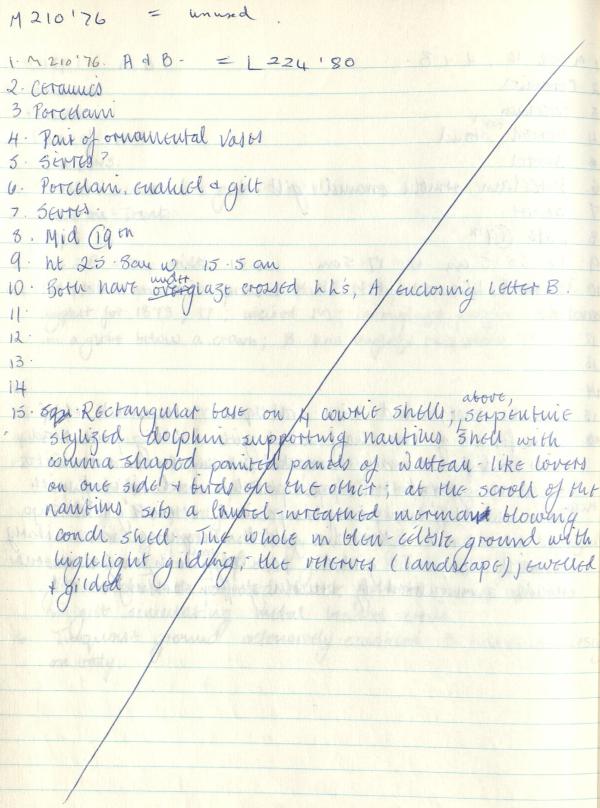 M 210 '76 = unused.
1. M 210 '76. A & B. = L 224 '80
2. Ceramics
3. Porcelain
4. Pair of ornamental vases
5. Sevres?
6. Porcelain, enamel & gilt
7. Sevres.
8. Mid 19th
9. ht 25.8cm w 15.5 cm
under
10. Both have overglaze crossed LL's, A enclosing letter B.
11.
12.
13.
14
above,
15. Rectangular base on 4 cowrie shells, serpentine
stylized dolphin supporting nautilus shell with
comma shaped painted panels of Watteau-like lovers
on one side & birds on the other; at the scroll of the
nautilus sits a laurel-wreathed merman blowing
conch shell. The whole in bleu-celeste ground with
highlight gilding, the reserves (landscape) jewelled
& gilded